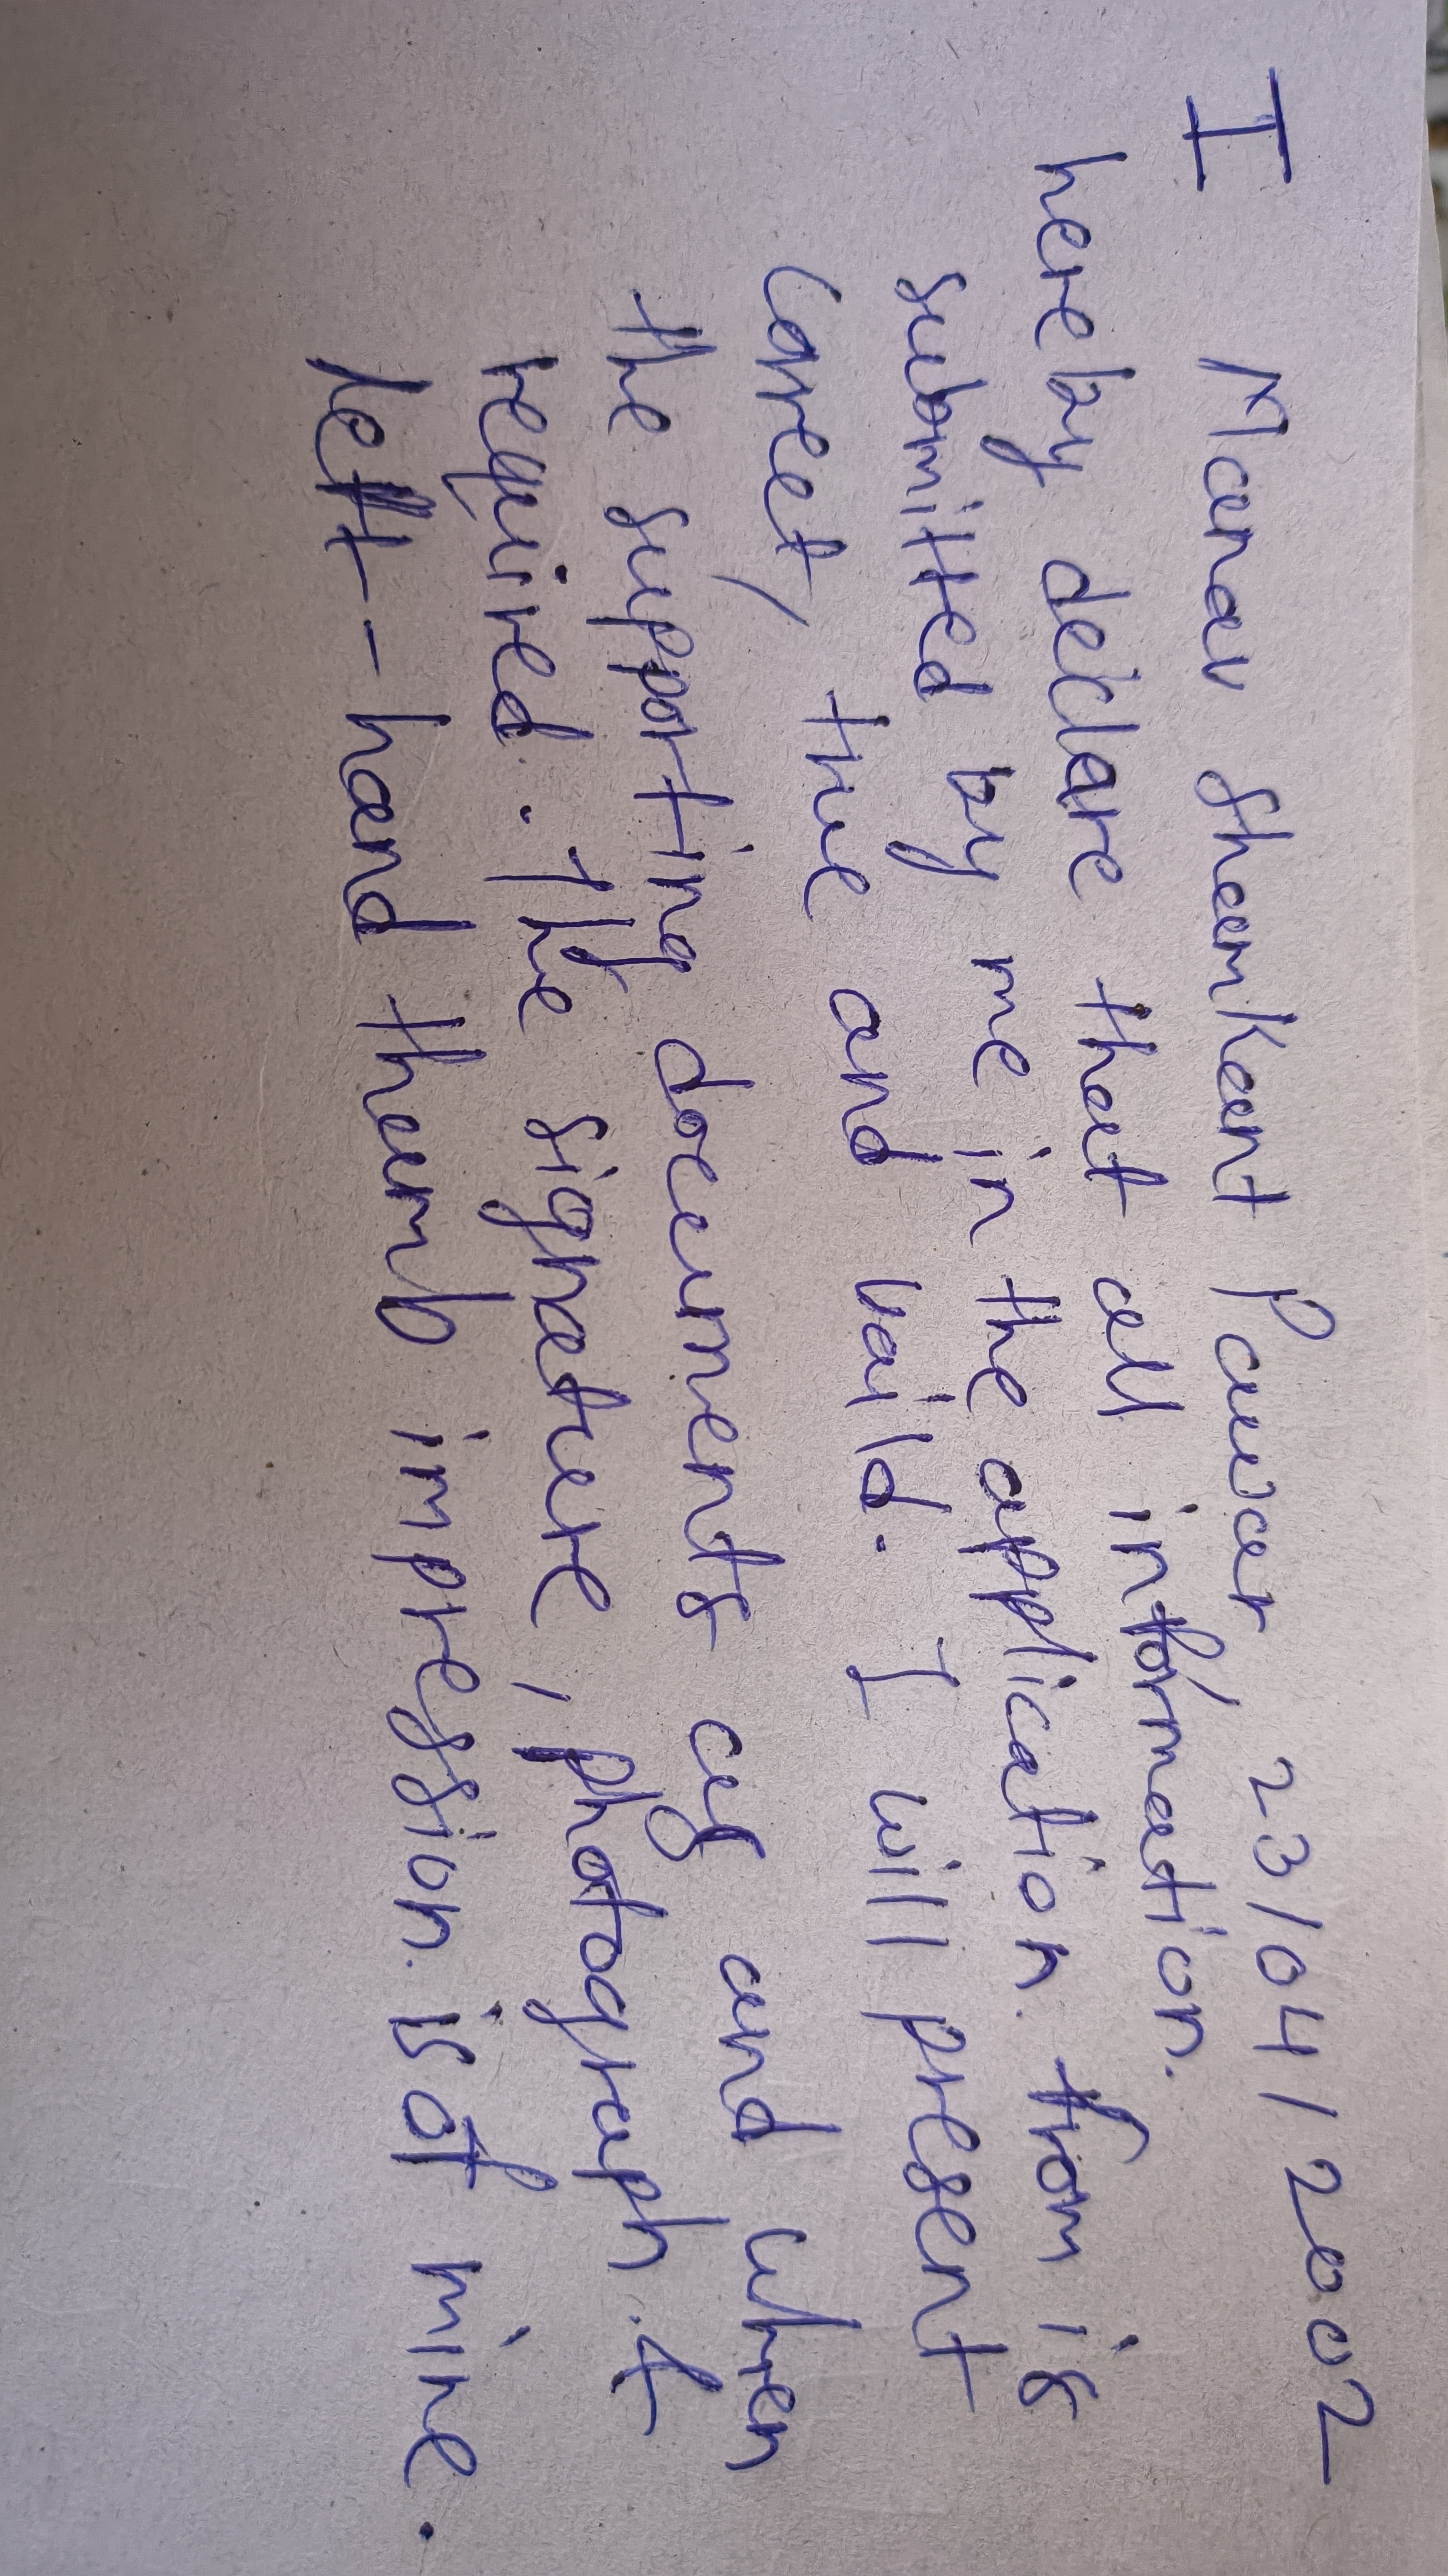 I Manav Shamkant Pawar 23/04/2002
hereby declare that all information.
submitted by me in the application. from is
Corret, true and vaild. I will present
the supporting documents as and when
required. The signature, photograph. &
left-hand thumb impression. is of mine.